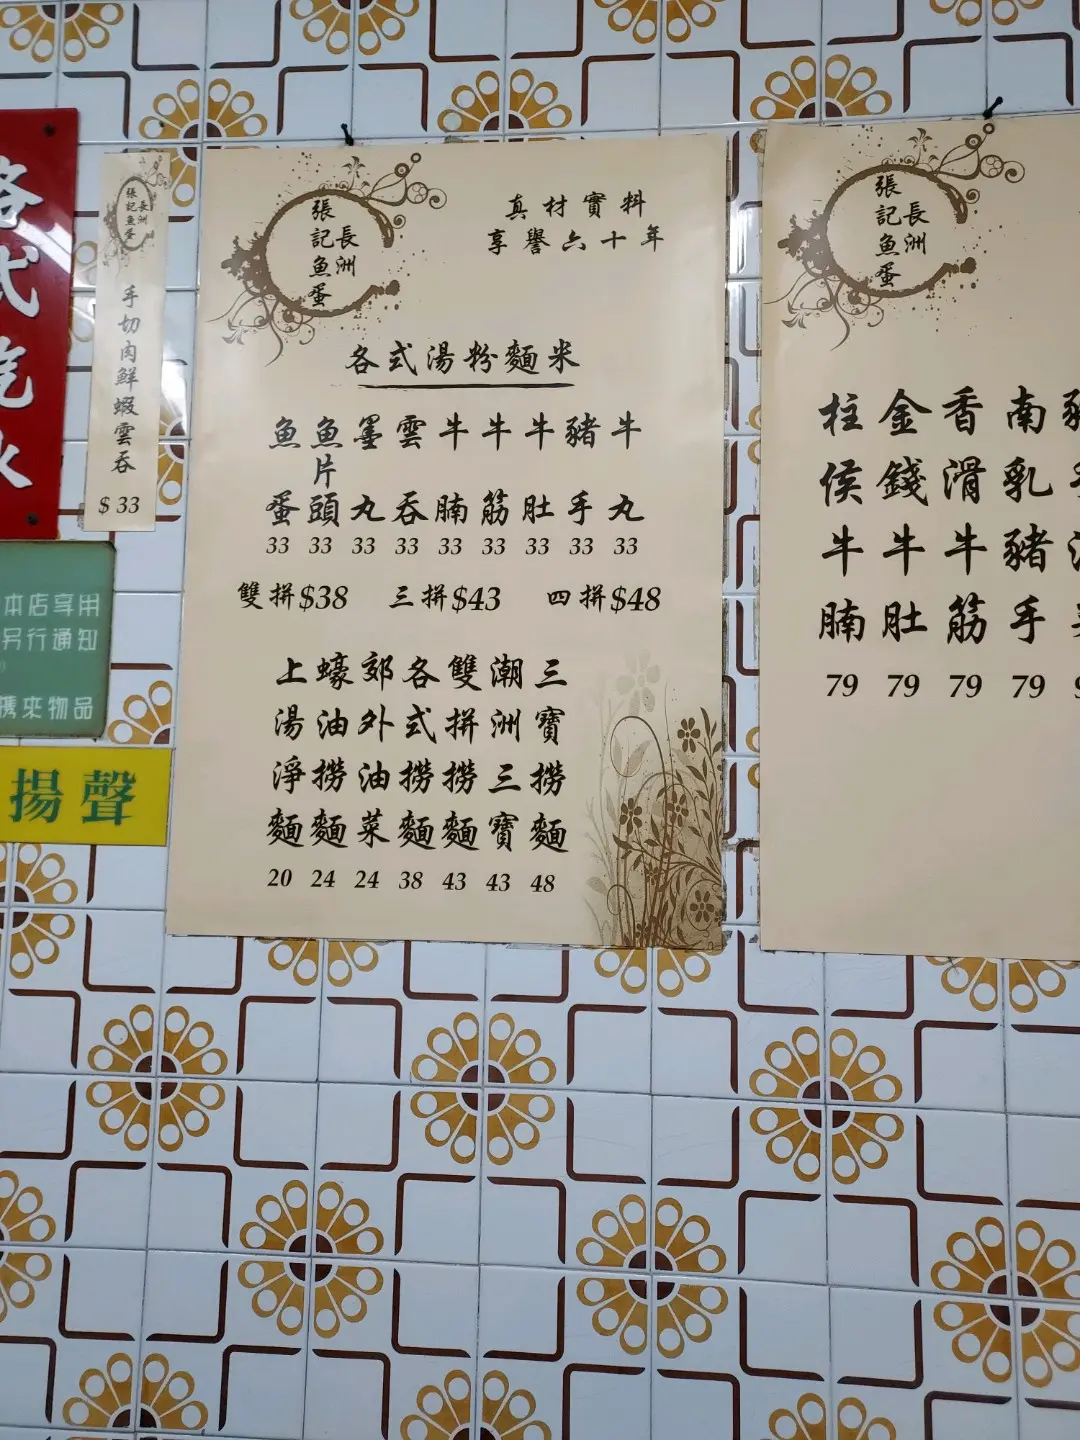 各式汽水
張記魚蛋
長洲
手切肉鮮蝦雲吞
$33
本店享用
另行通知
攜來物品
揚聲
張記魚蛋
長洲
真材實料
享譽六十年
各式湯粉麵米
魚蛋 33
魚片頭 33
墨丸 33
雲吞 33
牛腩 33
牛筋 33
牛肚 33
豬手 33
牛丸 33
雙拼$38 三拼$43 四拼$48
上湯淨麵 20
蠔油撈麵 24
郊外油菜 24
各式撈麵 38
雙拼撈麵 43
潮洲三寶 43
三寶撈麵 48
張記魚蛋
長洲
柱侯牛腩 79
金錢牛肚 79
香滑牛筋 79
南乳豬手 79